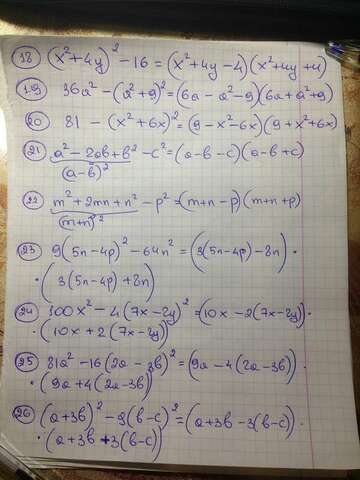 18 (x²+4y)² - 16 = (x²+4y-4)(x²+4y+4)
19 36a² - (a²+9)² = (6a - a² - 9)(6a + a² + 9)
20 81 - (x²+6x)² = (9 - x² - 6x)(9 + x² + 6x)
21 a² - 2ab + b² - c² = (a-b-c)(a-b+c)
(a-b)²
22 m² + 2mn + n² - p² = (m+n-p)(m+n+p)
(m+n)²
23 9(5n-4p)² - 64n² = (3(5n-4p) - 8n) ·
· (3(5n-4p) + 8n)
24 100x² - 4(7x-2y)² = (10x - 2(7x-2y)) ·
· (10x + 2(7x-2y))
25 81a² - 16(2a-3b)² = (9a - 4(2a-3b)) ·
· (9a + 4(2a-3b))
26 (a+3b)² - 9(b-c)² = (a+3b - 3(b-c)) ·
· (a+3b + 3(b-c))